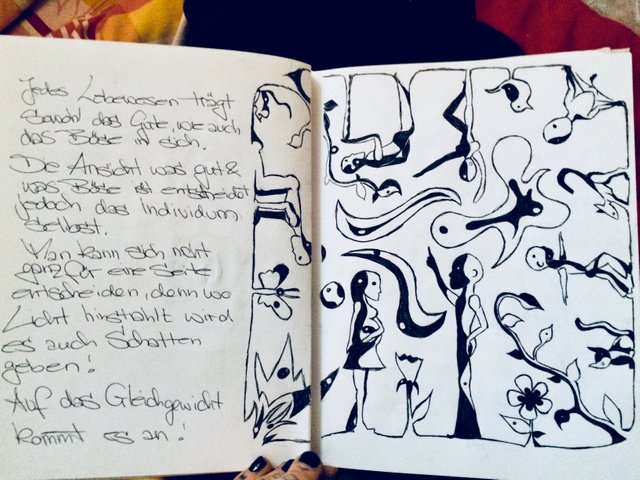 Jedes Lebewesen trägt
sowohl das Gute, wie auch
das Böse in sich.
Die Ansicht was gut &
was Böse ist entscheidet
jedoch das Individum
selbst.
Man kann sich nicht
ganz für eine Seite
entscheiden, denn wo
Licht hinstrahlt wird
es auch Schatten
geben!
Auf das Gleichgewicht
kommt es an!